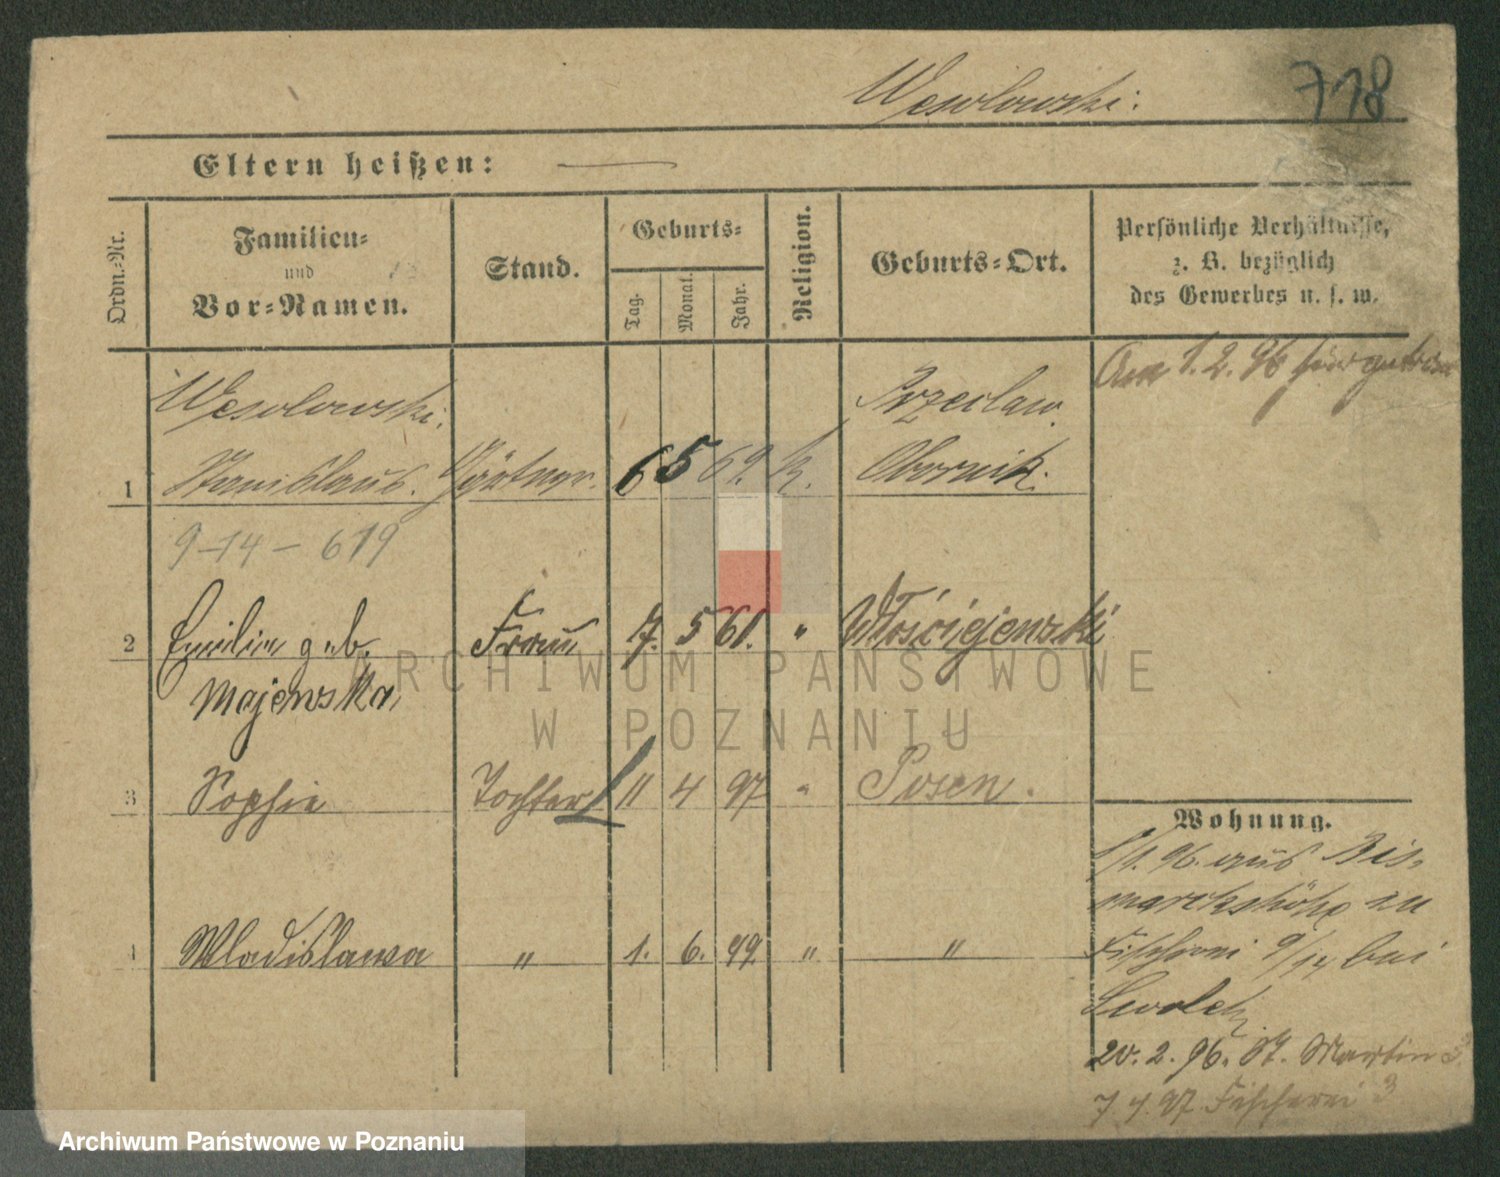 Wesolowski.
718
Eltern heißen:
Ordn.-Nr.
Familien-
und
Vor-Namen.
Stand.
Geburts-
Tag.
Monat.
Jahr.
Religion.
Geburts-Ort.
Persönliche Verhältnisse,
z. B. bezüglich
des Gewerbes u. s. w.
Am 1. 2. 96
Wesolowski.
Przeclaw.
1 Stanislaus. Gärtner. 6 5 69. k. Obornik.
9-14-619
2 Emilie geb. Frau 7. 5 61. " Włościejewski
Majewska
3 Sophie Tochter 11 4 97 " Posen.
4 Wladislawa " 1. 6. 99. " "
Wohnung.
96. aus Bis-
marckshöhe zu
Fischerei 9/14 bei
20. 2. 96. St. Martin
7 7 97 Fischerei 3
ARCHIWUM PAŃSTWOWE
W POZNANIU
Archiwum Państwowe w Poznaniu